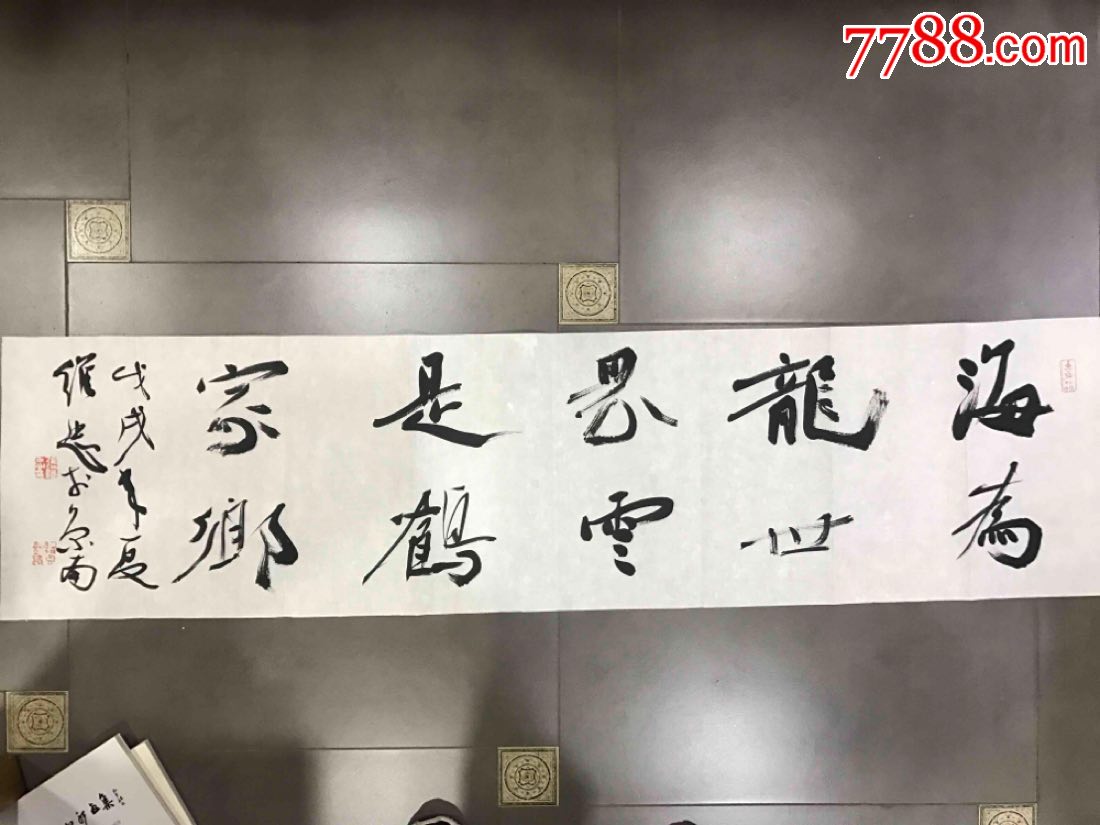 7788.com
海為
龍世
界雲
是鶴
家鄉
戊戌年夏
維忠於京南